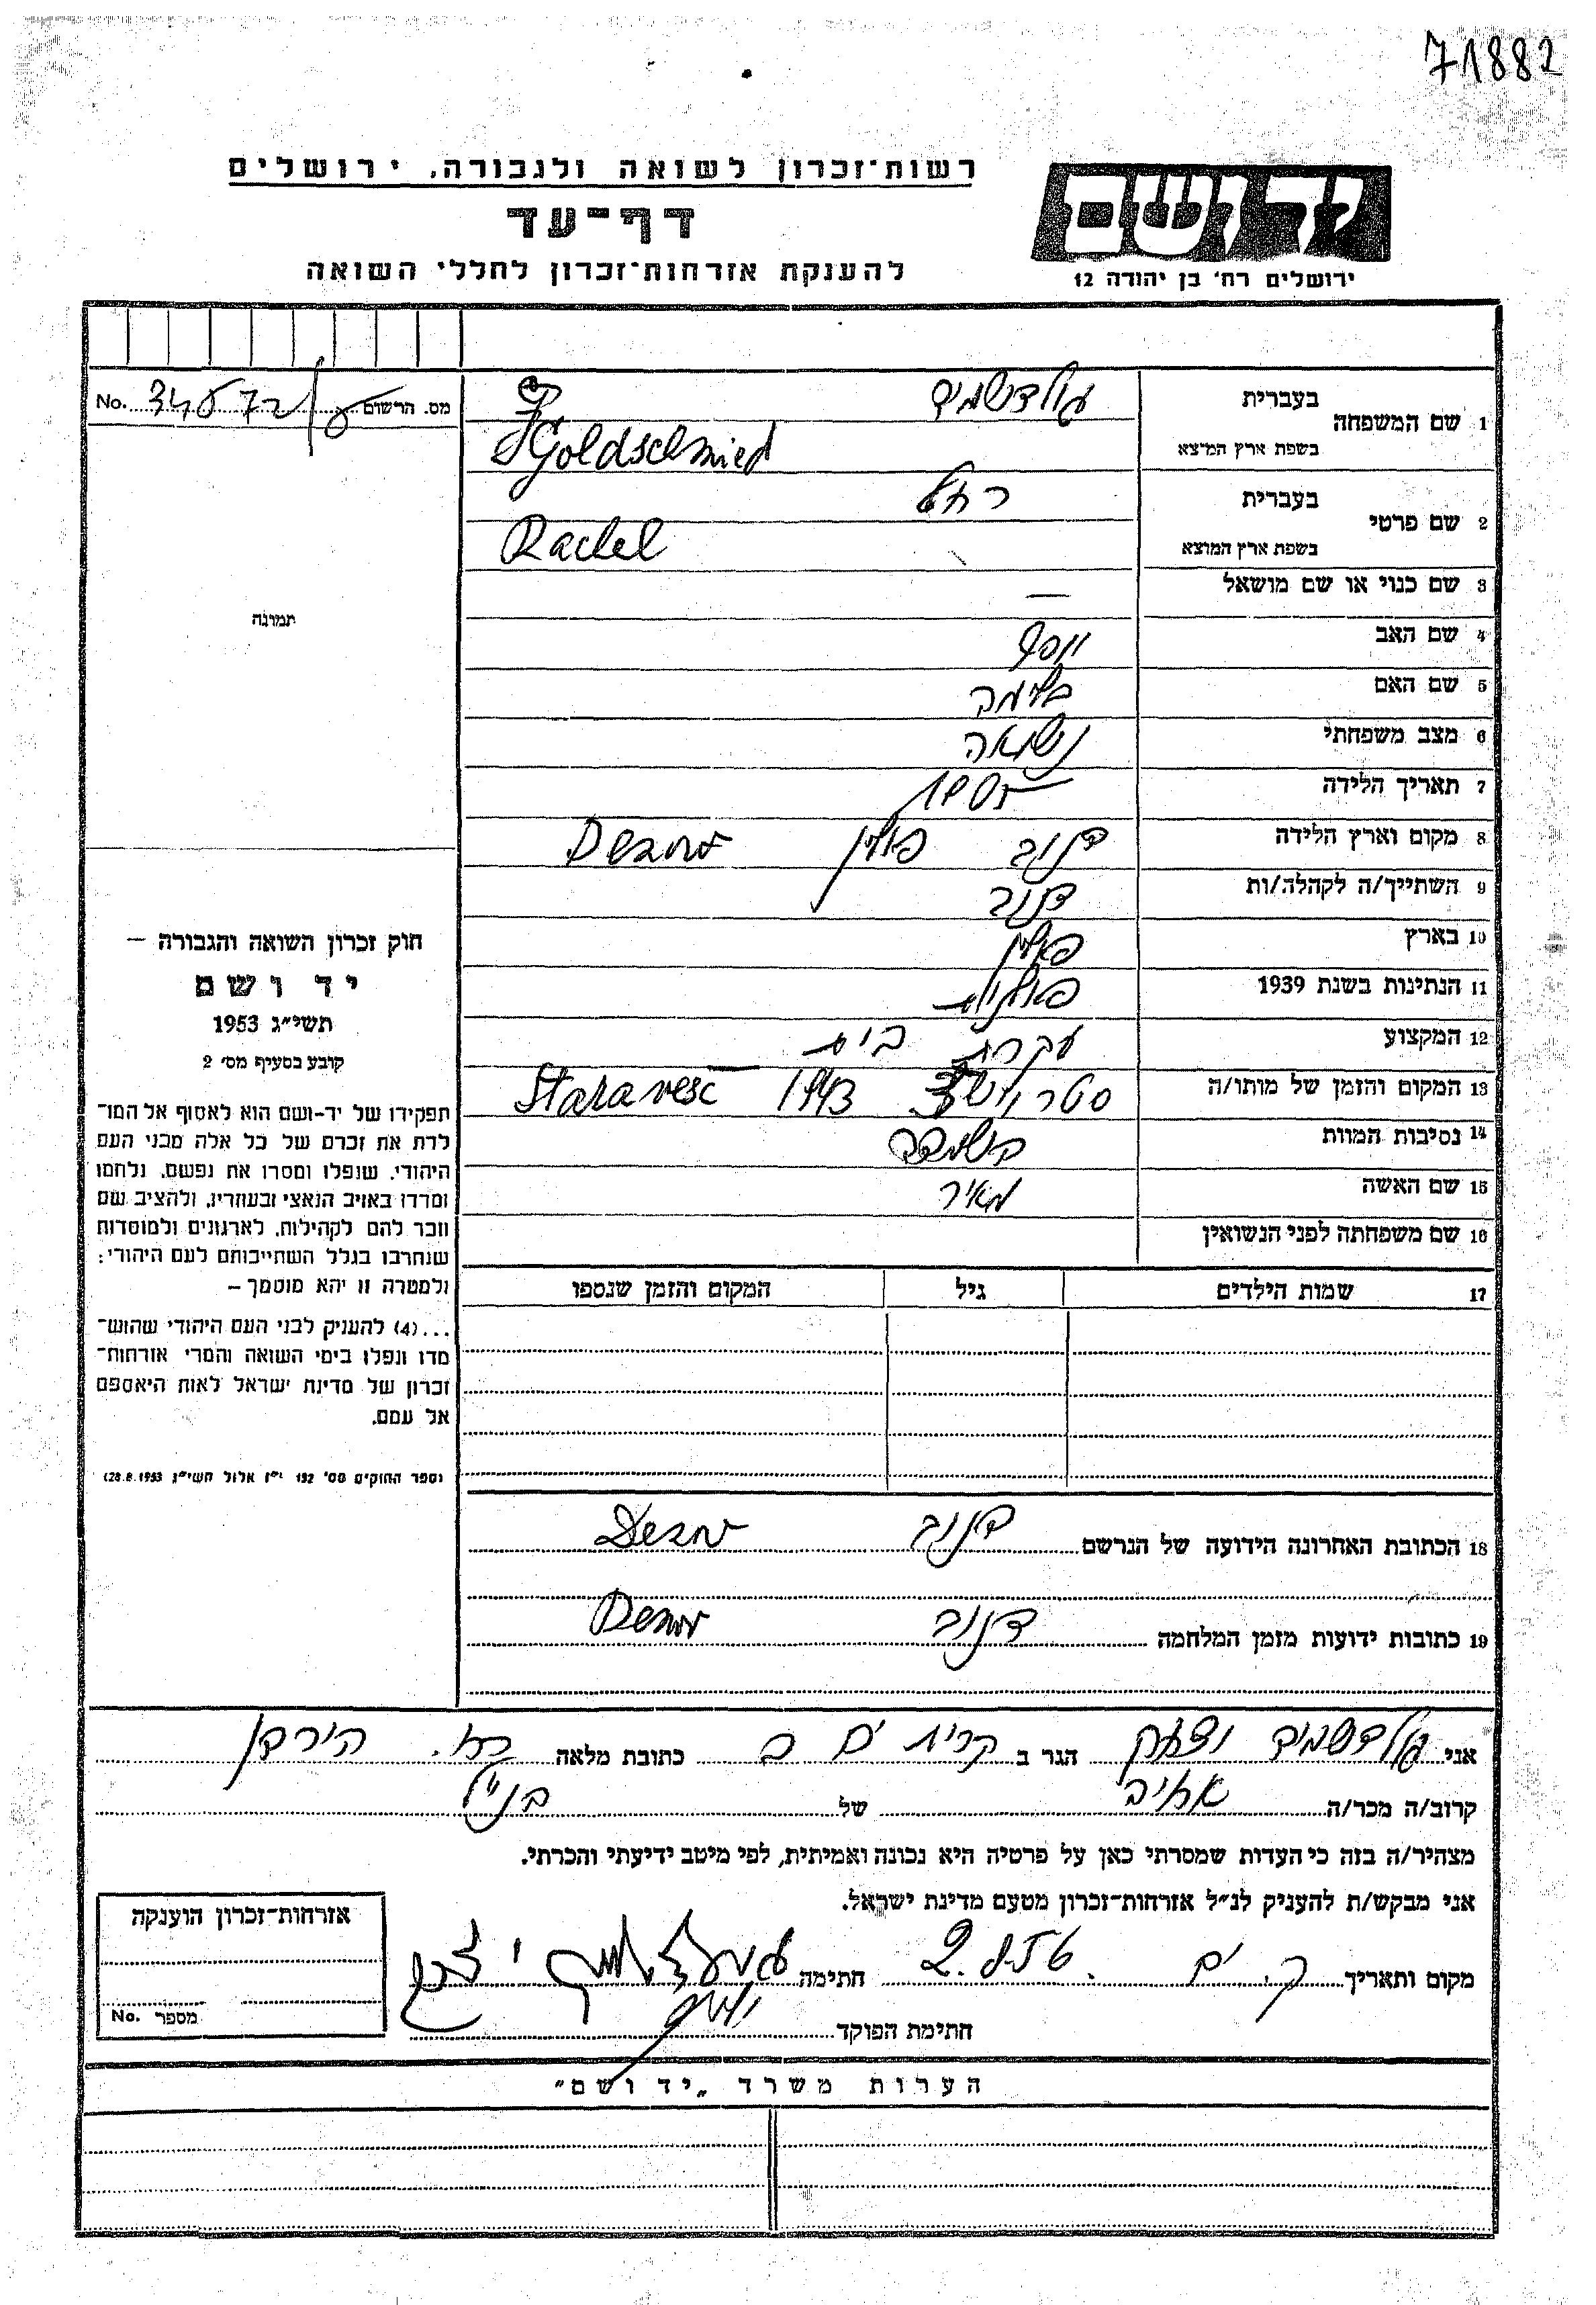 71882
יד ושם
ירושלים רח' בן יהודה 12
רשות־זכרון לשואה ולגבורה, ירושלים
דף־עד
להענקת אזרחות־זכרון לחללי השואה
מס. הרשום No. 34572
1 שם המשפחה בעברית גולדשמיד
בשפת ארץ המוצא Goldschmied
2 שם פרטי בעברית רחל
בשפת ארץ המוצא Rachel
3 שם כנוי או שם מושאל —
4 שם האב יוסף
5 שם האם בלימה
6 מצב משפחתי נשואה
7 תאריך הלידה
8 מקום וארץ הלידה דנוב פולין
9 השתייך/ה לקהלה/ות דנוב
10 בארץ פולין
11 הנתינות בשנת 1939 פולנית
12 המקצוע עקרת בית
13 המקום והזמן של מותו/ה 1943
14 נסיבות המוות
15 שם האשה מאיר
16 שם משפחתה לפני הנשואין
17 שמות הילדים גיל המקום והזמן שנספו
18 הכתובת האחרונה הידועה של הנרשם דנוב
19 כתובות ידועות מזמן המלחמה דנוב
תמונה
חוק זכרון השואה והגבורה —
יד ושם
תשי״ג 1953
קובע בסעיף מס׳ 2
תפקידו של יד-ושם הוא לאסוף אל המו־
לדת את זכרם של כל אלה מבני העם
היהודי, שנפלו ומסרו את נפשם, נלחמו
ומרדו באויב הנאצי ובעוזריו, ולהציב שם
וזכר להם לקהילות, לארגונים ולמוסדות
שנחרבו בגלל השתייכותם לעם היהודי;
ולמטרה זו יהא מוסמך —
...(4) להעניק לבני העם היהודי שהוש־
מדו ונפלו בימי השואה והמרי אזרחות־
זכרון של מדינת ישראל לאות היאספם
אל עמם.
(ספר החוקים מס׳ 132 י״ז אלול תשי״ג 28.8.1953)
אני גולדשמיד יצחק הגר ב קרית ים ב כתובת מלאה הירדן
קרוב/ה מכר/ה של הנ״ל
מצהיר/ה בזה כי העדות שמסרתי כאן על פרטיה היא נכונה ואמיתית, לפי מיטב ידיעתי והכרתי.
אני מבקש/ת להעניק לנ״ל אזרחות־זכרון מטעם מדינת ישראל.
מקום ותאריך ק. ים 2.8.56 חתימה
חתימת הפוקד
אזרחות־זכרון הוענקה
מספר No.
הערות משרד „יד ושם״